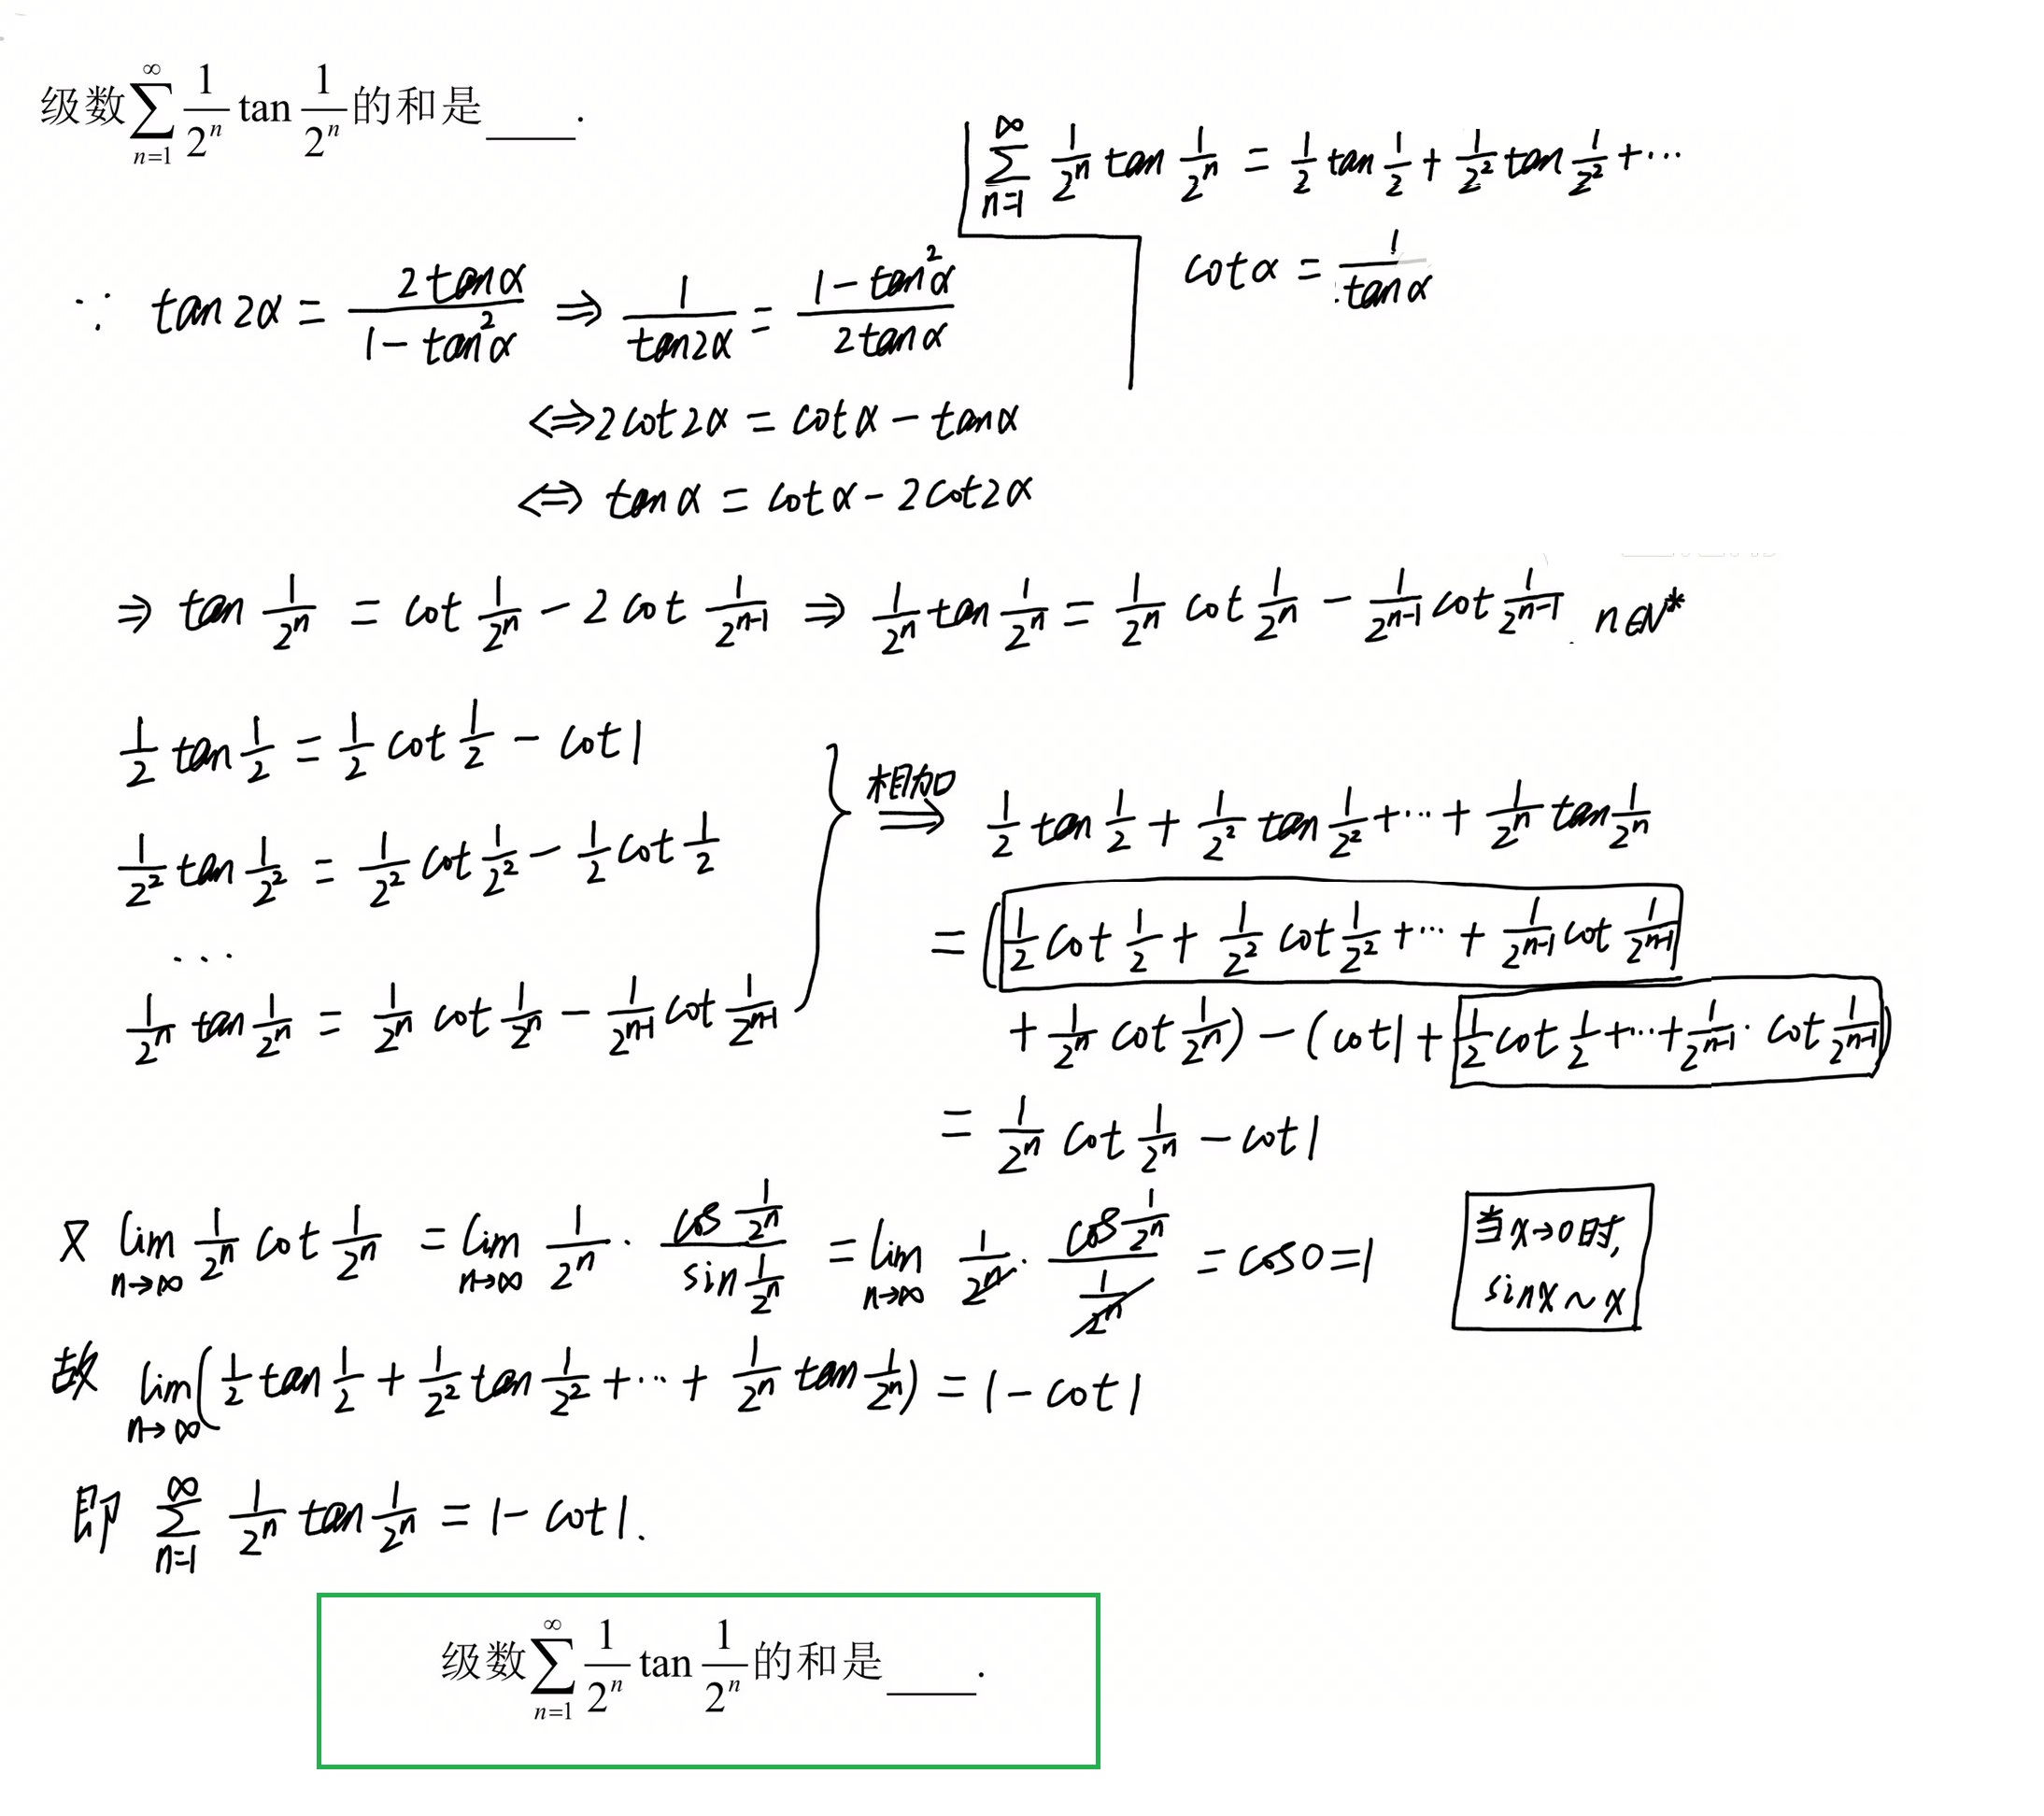 级数 $\sum_{n=1}^{\infty} \frac{1}{2^n} \tan \frac{1}{2^n}$ 的和是____.
$\sum_{n=1}^{\infty} \frac{1}{2^n} \tan \frac{1}{2^n} = \frac{1}{2} \tan \frac{1}{2} + \frac{1}{2^2} \tan \frac{1}{2^2} + \cdots$
$\cot\alpha = \frac{1}{\tan\alpha}$
∵ $\tan 2\alpha = \frac{2\tan\alpha}{1-\tan^2\alpha} \Rightarrow \frac{1}{\tan 2\alpha} = \frac{1-\tan^2\alpha}{2\tan\alpha}$
$\Leftrightarrow 2\cot 2\alpha = \cot\alpha - \tan\alpha$
$\Leftrightarrow \tan\alpha = \cot\alpha - 2\cot 2\alpha$
$\Rightarrow \tan \frac{1}{2^n} = \cot \frac{1}{2^n} - 2\cot \frac{1}{2^{n-1}} \Rightarrow \frac{1}{2^n} \tan \frac{1}{2^n} = \frac{1}{2^n} \cot \frac{1}{2^n} - \frac{1}{2^{n-1}} \cot \frac{1}{2^{n-1}}. n \in N^*$
$\frac{1}{2} \tan \frac{1}{2} = \frac{1}{2} \cot \frac{1}{2} - \cot 1$
$\frac{1}{2^2} \tan \frac{1}{2^2} = \frac{1}{2^2} \cot \frac{1}{2^2} - \frac{1}{2} \cot \frac{1}{2}$
$\cdots$
$\frac{1}{2^n} \tan \frac{1}{2^n} = \frac{1}{2^n} \cot \frac{1}{2^n} - \frac{1}{2^{n-1}} \cot \frac{1}{2^{n-1}}$
相加 $\Rightarrow \frac{1}{2} \tan \frac{1}{2} + \frac{1}{2^2} \tan \frac{1}{2^2} + \cdots + \frac{1}{2^n} \tan \frac{1}{2^n}$
$= (\frac{1}{2} \cot \frac{1}{2} + \frac{1}{2^2} \cot \frac{1}{2^2} + \cdots + \frac{1}{2^{n-1}} \cot \frac{1}{2^{n-1}}$
$+ \frac{1}{2^n} \cot \frac{1}{2^n}) - (\cot 1 + \frac{1}{2} \cot \frac{1}{2} + \cdots + \frac{1}{2^{n-1}} \cdot \cot \frac{1}{2^{n-1}})$
$= \frac{1}{2^n} \cot \frac{1}{2^n} - \cot 1$
又 $\lim_{n\to\infty} \frac{1}{2^n} \cot \frac{1}{2^n} = \lim_{n\to\infty} \frac{1}{2^n} \cdot \frac{\cos \frac{1}{2^n}}{\sin \frac{1}{2^n}} = \lim_{n\to\infty} \frac{1}{2^n} \cdot \frac{\cos \frac{1}{2^n}}{\frac{1}{2^n}} = \cos 0 = 1$
当 $x \to 0$ 时,
$\sin x \sim x$
故 $\lim_{n\to\infty} (\frac{1}{2} \tan \frac{1}{2} + \frac{1}{2^2} \tan \frac{1}{2^2} + \cdots + \frac{1}{2^n} \tan \frac{1}{2^n}) = 1 - \cot 1$
即 $\sum_{n=1}^{\infty} \frac{1}{2^n} \tan \frac{1}{2^n} = 1 - \cot 1.$
级数 $\sum_{n=1}^{\infty} \frac{1}{2^n} \tan \frac{1}{2^n}$ 的和是____.